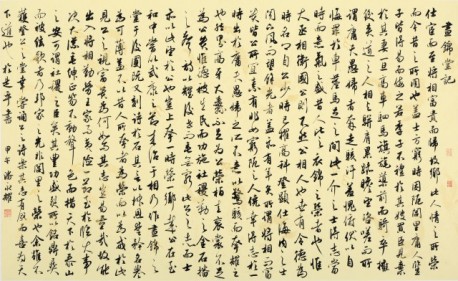 晝錦堂記
仕宦而至將相富貴而歸故鄉此人情之所榮
而今昔之所同也蓋士方窮時困阨閭里庸人孺
子皆得易而侮之若季子不禮於其嫂買臣見棄
於其妻一旦高車駟馬旗旄導前而騎卒擁
後夾道之人相與駢肩累跡瞻望咨嗟而所
謂庸夫愚婦者奔走駭汗羞愧俯伏以自
悔罪於車塵馬足之間此一介之士得志於當
時而意氣之盛昔人比之衣錦之榮者也惟
大丞相衛國公則不然公相人也世有令德為
時名卿自公少時已擢高科登顯仕海內之士
聞下風而望餘光者蓋亦有年矣所謂將相而富
貴皆公所宜素有非如窮阨之人僥倖得志於一
時出於庸夫愚婦之不意以驚駭而誇耀之
也然則高牙大纛不足為公榮桓圭袞冕不足
為公貴惟德被生民而功施社稷勒之金石播
之聲詩以耀後世而垂無窮此公之志而士
亦以此望於公也豈止誇一時而榮一鄉哉公在至
和中嘗以武康之節來治於相乃作晝錦之
堂于後圃既又刻詩於石以遺相人其言以快恩讎矜名譽
為可薄蓋不以昔人所誇者為榮而以為戒於此
見公之視富貴為何如而其志豈易量哉故能
出入將相勤勞王家而夷險一節至於臨大事
決大議垂紳正笏不動聲色而措天下於泰山
之安可謂社稷之臣矣其豐功盛烈所以銘彝鼎
而被弦歌者乃邦家之光非閭里之榮也余雖不
獲登公之堂幸嘗竊誦公之詩樂公之志有成而喜為天
下道也於是乎書 甲午